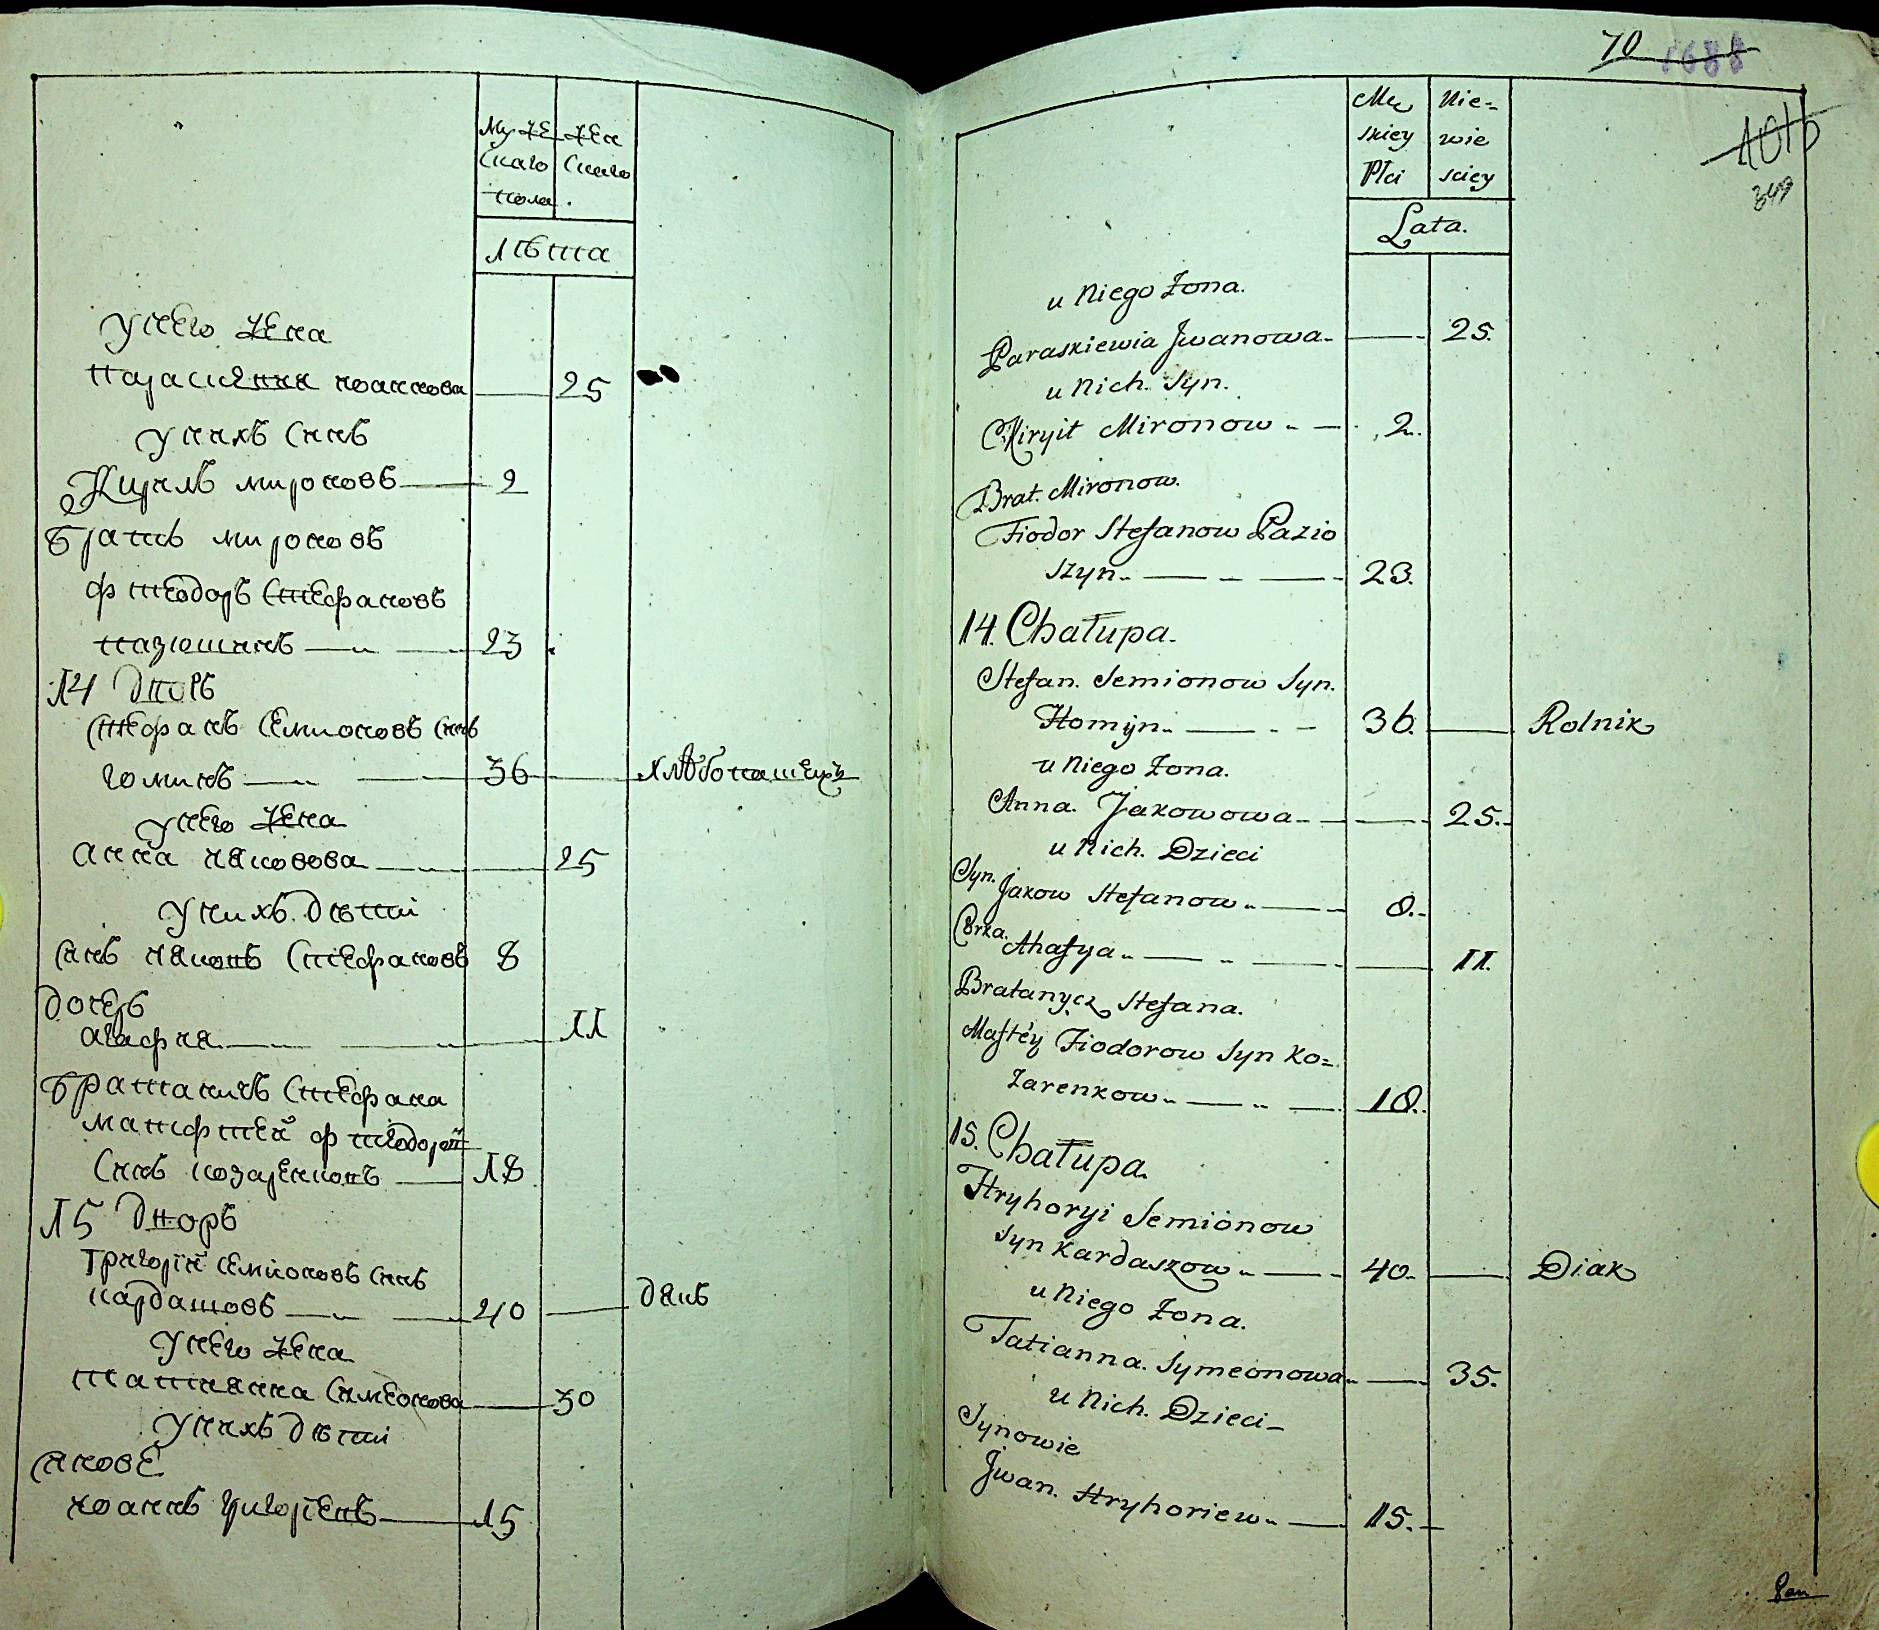 Мужескаго пола
Женскаго
Лѣта
у него жена
параскевия иоаннова 25
у нихъ синъ
Кирилъ мироновъ 2
братъ мироновъ
фтеодоръ Стефановъ
пазюшинъ 23
14 Дворъ
Стефанъ Семионовъ синъ
гоминъ 36 хлѣбопашецъ
у него жена
анна яковова 25
у нихъ дѣти
синъ яковъ Стефановъ 8
дочеръ
агафия 11
братаничъ Стефана
матфтей фтеодоровъ
Синъ козаренковъ 18
15 Дворъ
Григорій семионовъ синъ
кардашовъ 40 дякъ
у него жена
татиянна Симеонова 30
у нихъ дѣти
синове
иоаннъ григорїевъ 15
70 1688
101b
349
Męskiey Płci
Niewiesciey
Lata.
u Niego Żona.
Paraskiewia Jwanowa 25.
u Nich. Syn.
Kiryił Mironow 2.
Brat. Mironow.
Fiodor Stefanow Pazio
szyn 23.
14. Chałupa.
Stefan. Semionow Syn.
Homyn 36. Rolnik
u Niego Żona.
Anna. Jakowowa 25.
u Nich. Dzieci
Syn. Jakow Stefanow 8.
Corka. Ahafya 11.
Bratanycz Stefana.
Maftéy Fiodorow Syn Ko=
zarenkow 18.
15. Chałupa.
Hryhoryi Semionow
Syn Kardaszow 40. Diak
u Niego Żona.
Tatianna. Symeonowa 35.
u Nich. Dzieci
Synowie
Jwan. Hryhoriew 15.